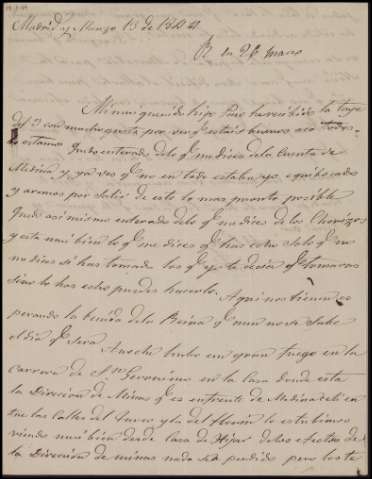 Madrid y Marzo 13 de 1844
R en 26 marzo
Mi muy querido hijo Pino he recibido la tuya
del 7 con mucho gusto por ver qe estais buenos aca todos
lo estamos. Quedo enterado de lo qe me dices de la Cuenta de
Medina y ya ves qe no en todo estaba yo equibocado
y aremos por salir de esto lo mas pronto posible
Quedo asi mismo enterado de lo qe me dices de los Chorizos
y esta muy bien lo qe me dices qe has echo solo qe no
me dices si has tomado los qe yo te decia qe tomaras
sino lo has echo puedes hacerlo. Aqui nos tienen es
perando la benida de la Reina qe aun no se sabe
el dia qe sera. Anoche hubo un gran fuego en la
Carrera de Sn Geronimo en la casa donde esta
la Direccion de Minas qe es enfrente de Medinaceli en
tre las Calles del Turco y la del Florin lo estubimos
viendo muy bien desde casa de Hijar de los efectos de
la Direccion de minas nada se a perdido pero los te